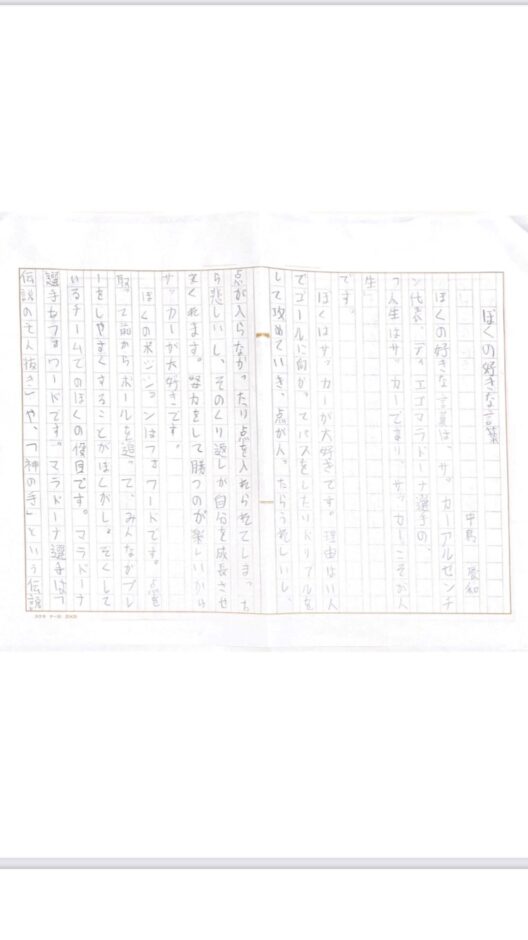 ぼくの好きな言葉
中島
ぼくの好きな言葉は、サッカーアルゼンチ
ン代表、ディエゴマラドーナ選手の、
「人生はサッカーであり、サッカーこそが人
生」
です。
ぼくはサッカーが大好きです。理由は、人
でゴールに向かってパスをしたりドリブルを
して攻めていき、点が入ったらうれしいし、
点が入らなかったり点を入れられてしまった
ら悲しいし、そのくり返しが自分を成長させ
てくれます。努力をして勝つのが楽しいから
サッカーが大好きです。
ぼくのポジションはフォワードです。点を
取って前からボールを追って、みんながプレ
ーをしやすくすることがぼくが して
いるチームでのぼくの役目です。マラドーナ
選手もフォワードです。マラドーナ選手は「
伝説の五人抜き」や、「神の手」という伝説